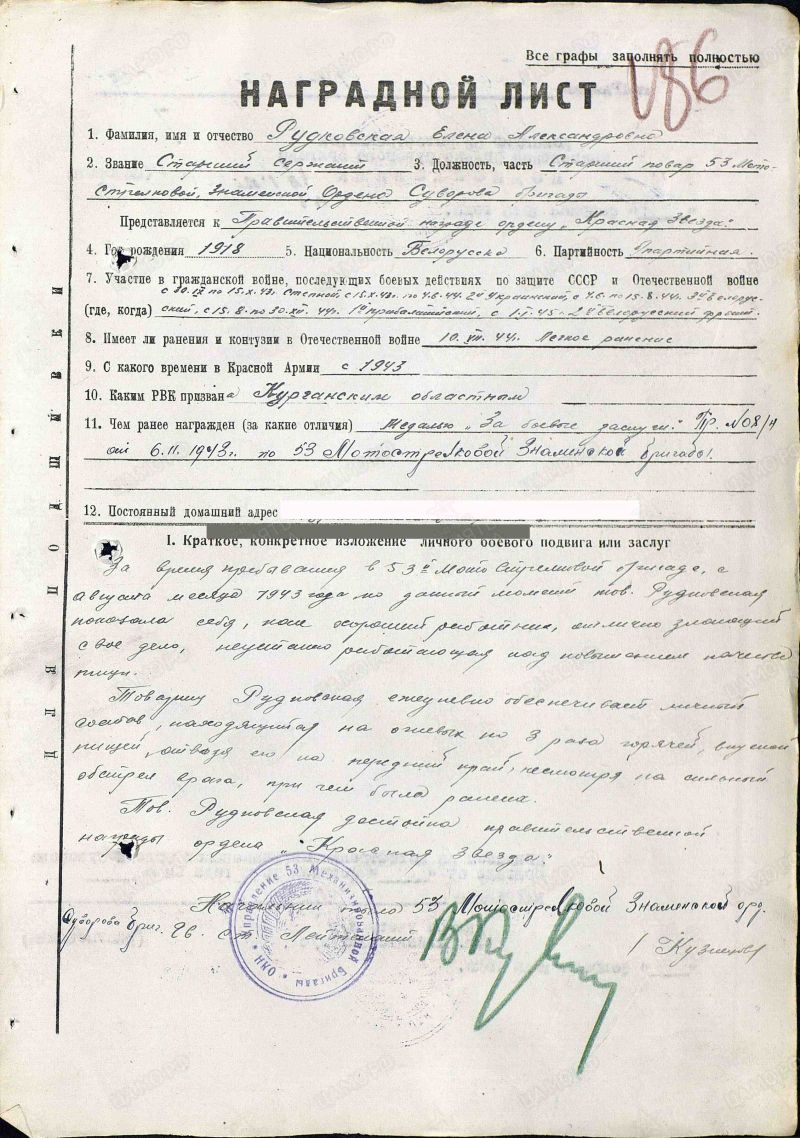 Все графы заполнять полностью
НАГРАДНОЙ ЛИСТ
1. Фамилия, имя и отчество Рудковская Елена Александровна
2. Звание Старший сержант 3. Должность, часть Старший повар 53 Мото-
стрелковой, Знаменской Ордена Суворова бригады
Представляется к Правительственной награде ордену „Красная Звезда".
4. Год рождения 1918 5. Национальность Белорусска 6. Партийность б/партийная.
7. Участие в гражданской войне, последующих боевых действиях по защите СССР и Отечественной войне
(где, когда) с 15.8. по 30.XII. 44г. 1й прибалтийский, с 1.I.45г. 2й белорусский фронт.
8. Имеет ли ранения и контузии в Отечественной войне 10.VII.44г. Легкое ранение
9. С какого времени в Красной Армии с 1943
10. Каким РВК призвана Курганским областным
11. Чем ранее награжден (за какие отличия) Медалью „За боевые заслуги." Пр. №08/н
от 6.11.1943г. по 53 Мотострелковой Знаменской бригады.
12. Постоянный домашний адрес
I. Краткое, конкретное изложение личного боевого подвига или заслуг
За время пребывания в 53й Мото Стрелковой бригаде, с
августа месяца 1943 года по данный момент тов. Рудковская
показала себя, как хороший работник, отлично знающий
свое дело, неустанно работающая над повышением качества
пищи.
Товарищ Рудковская ежедневно обеспечивает личный
состав, находящийся на огневых по 3 раза горячей, вкусной
пищей, отвозя его на передний край, несмотря на сильный
обстрел врага, при чем была ранена.
Тов. Рудковская достойна правительственной
награды ордена „Красная Звезда".
Начальник 53 Мотострелковой Знаменской орд.
Суворова Бриг. Гв. Ст. Лейтенант / Кузнецов /
Управление 53 Механизированной Бригады
ДЛЯ ПОДШИВКИ